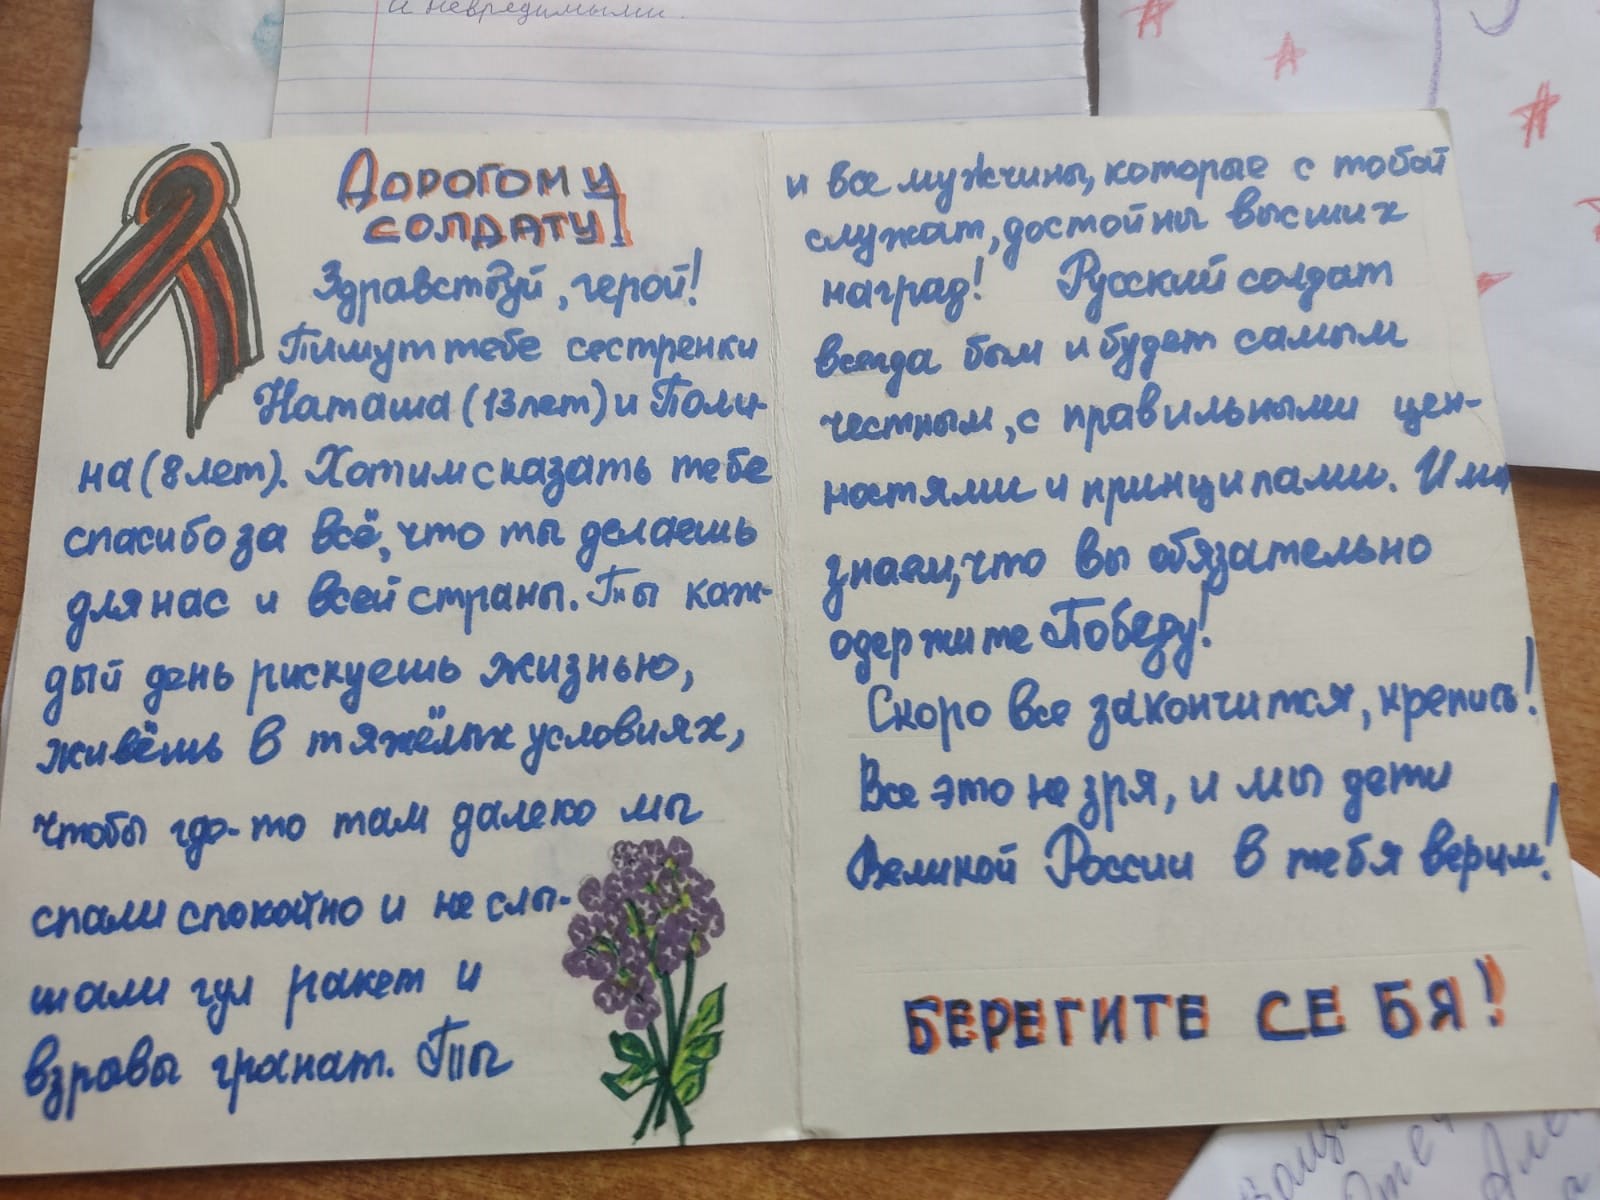 и невредимыми.
ДОРОГОМУ
СОЛДАТУ!
Здравствуй, герой!
Пишут тебе сестренки
Наташа (13 лет) и Поли-
на (8 лет). Хотим сказать тебе
спасибо за всё, что ты делаешь
для нас и всей страны. Ты каж-
дый день рискуешь жизнью,
живёшь в тяжёлых условиях,
чтобы где-то там далеко мы
спали спокойно и не слы-
шали гул ракет и
взрывы гранат. Ты
и все мужчины, которые с тобой
служат, достойны высших
наград! Русский солдат
всегда был и будет самым
честным, с правильными цен-
ностями и принципами. И мы
знаем, что вы обязательно
одержите Победу!
Скоро все закончится, крепись!
Все это не зря, и мы дети
Великой России в тебя верим!
БЕРЕГИТЕ СЕБЯ!